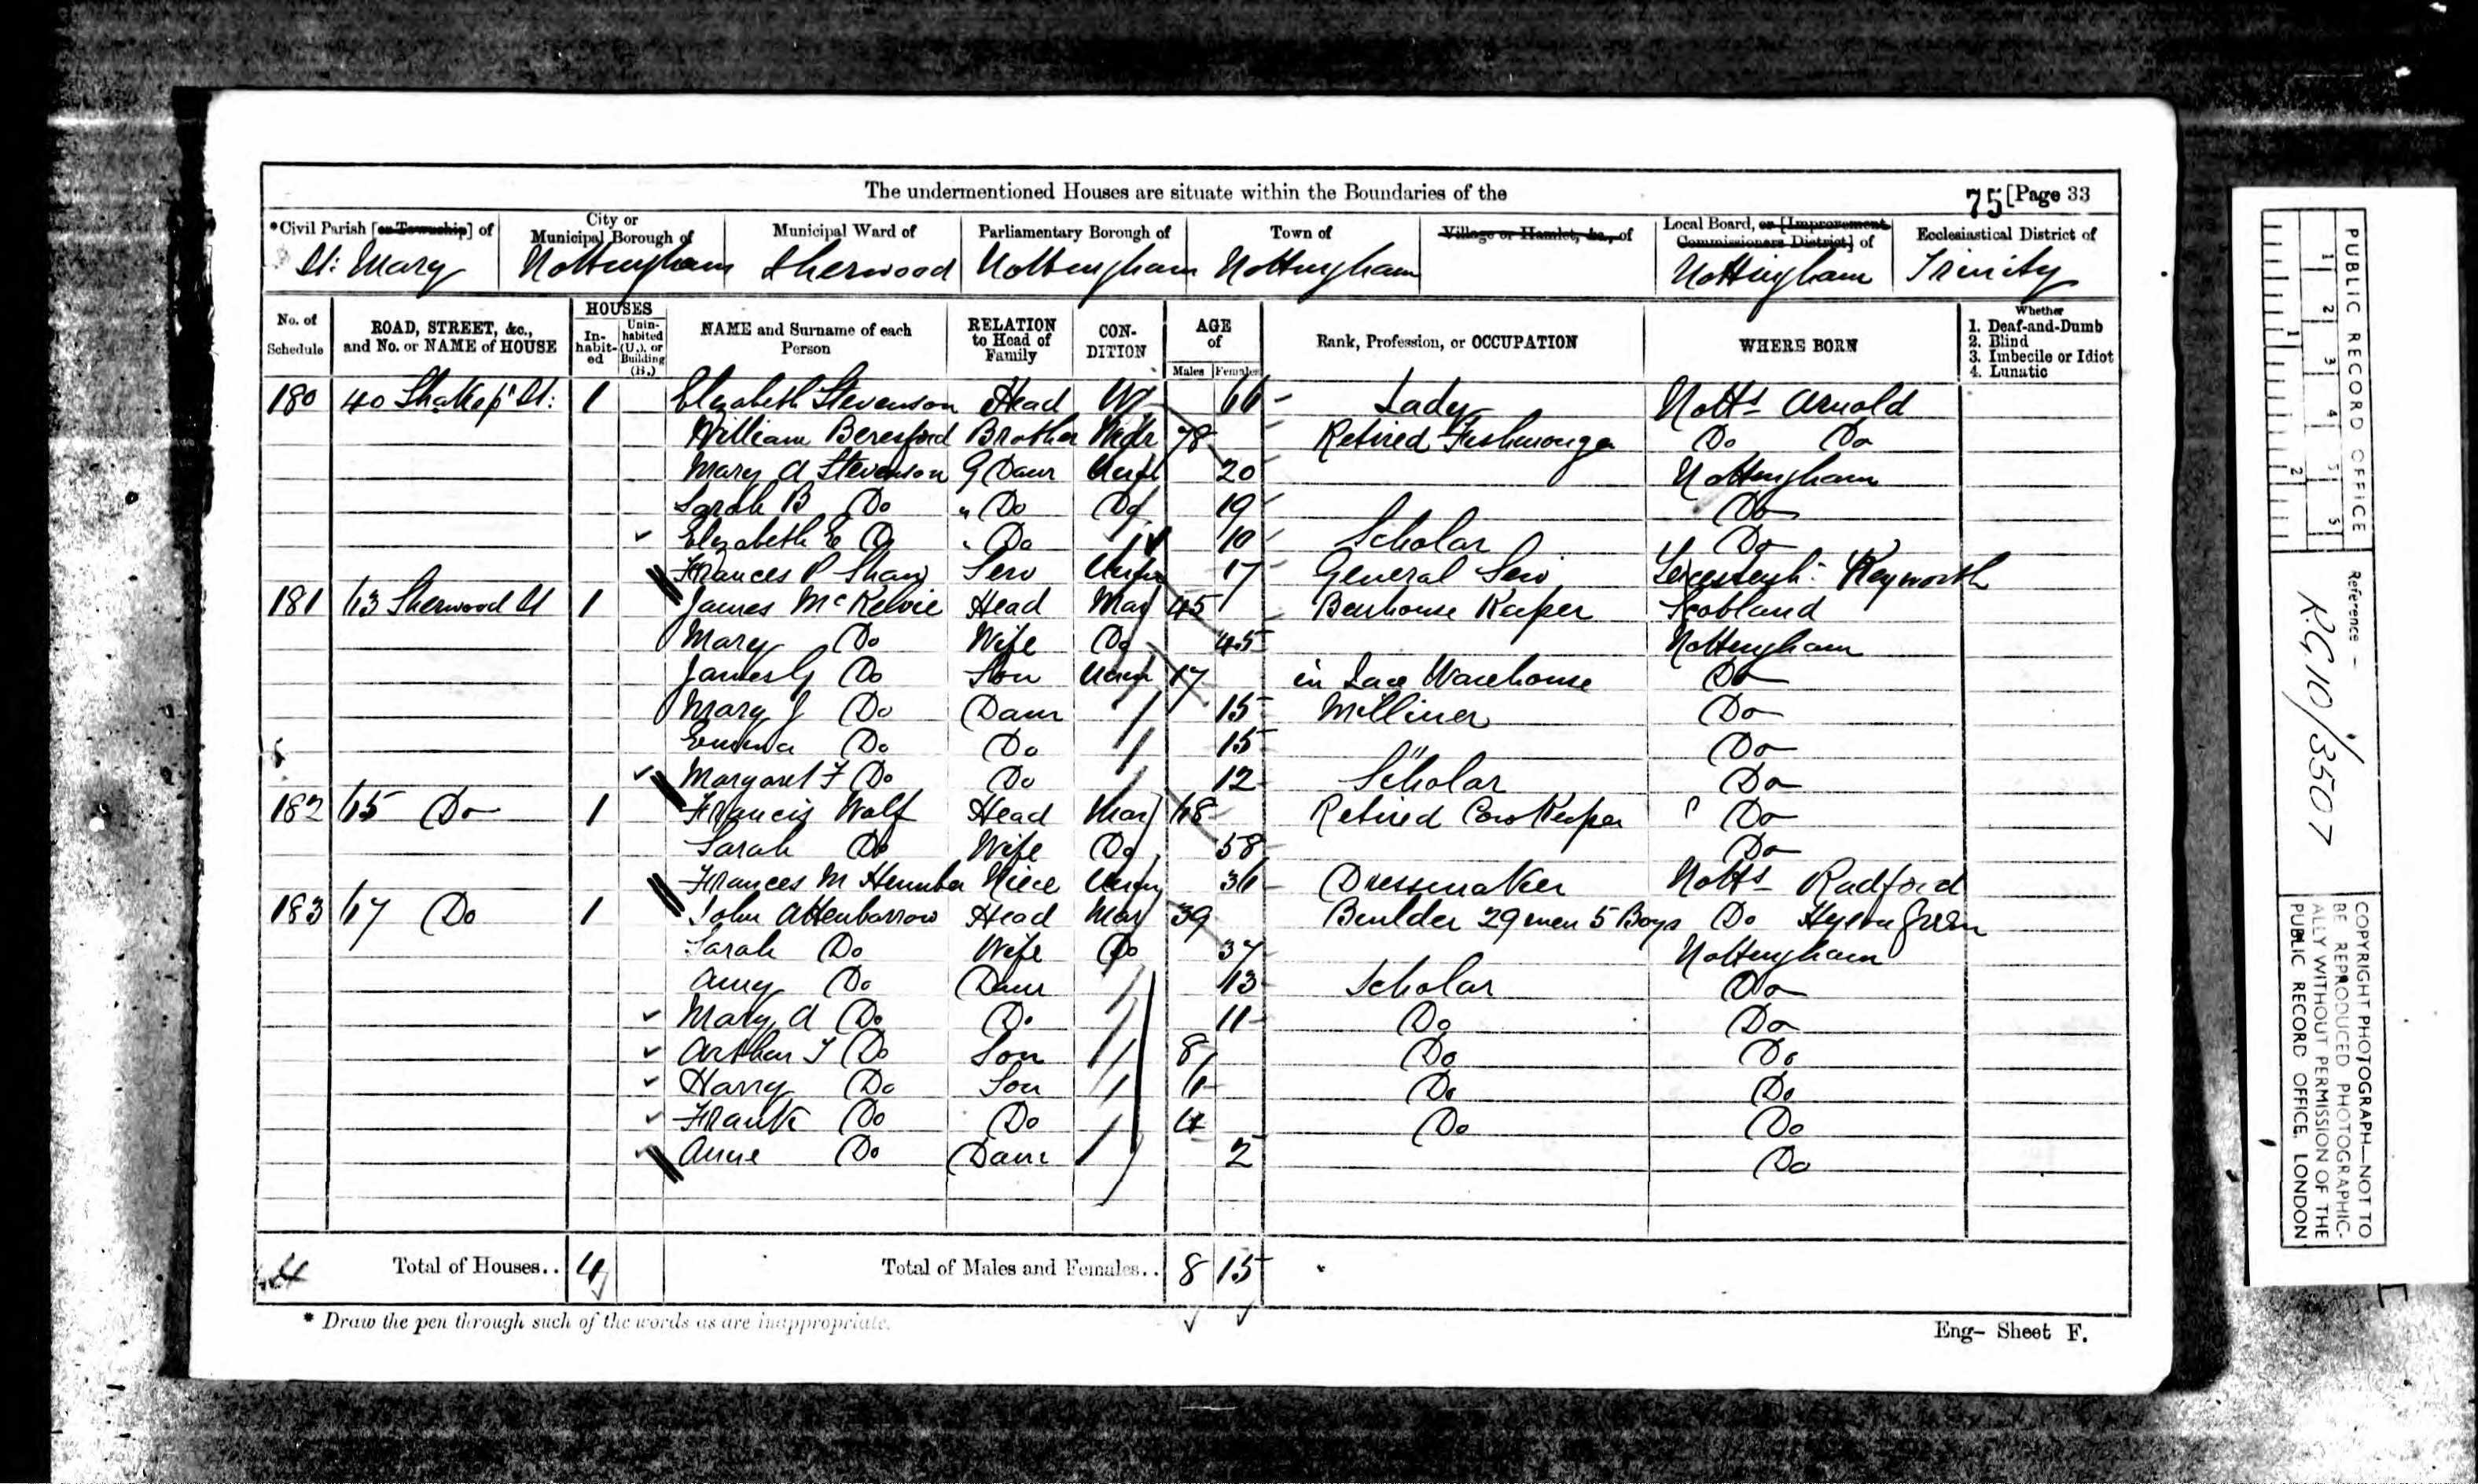 The undermentioned Houses are situate within the Boundaries of the
75 [Page 33
*Civil Parish [or Township] of
City or Municipal Borough of
Municipal Ward of
Parliamentary Borough of
Town of
Village or Hamlet, &c., of
Local Board, or [Improvement Commissioners District] of
Ecclesiastical District of
St: Mary Nottingham Sherwood Nottingham Nottingham Nottingham Trinity
No. of Schedule
ROAD, STREET, &c., and No. or NAME of HOUSE
HOUSES
In-habit-ed
Unin-habited (U.), or Building (B.)
NAME and Surname of each Person
RELATION to Head of Family
CON-DITION
AGE of
Males Females
Rank, Profession, or OCCUPATION
WHERE BORN
Whether
1. Deaf-and-Dumb
2. Blind
3. Imbecile or Idiot
4. Lunatic
180 40 St: 1 Elizabeth Stevenson Head 66 Lady Notts Arnold
William Beresford Brother Widr 78 Retired Fishmonger Do Do
Mary A Stevenson G Daur Unm 20 Nottingham
Sarah B Do " Do Do 19 Do
Elizabeth E Do " Do 10 Scholar Do
Frances P Shaw Serv Unm 17 General Serv Keyworth
181 63 Sherwood St 1 James McKelvie Head Mar 45 Beerhouse Keeper Scotland
Mary Do Wife Do 45 Nottingham
James G Do Son Unm 17 in Lace Warehouse Do
Mary J Do Daur 15 Milliner Do
Emma Do Do 15 " Do
Margaret F Do Do 12 Scholar Do
182 65 Do 1 Francis Wolf Head Mar 68 Retired Cow Keeper Do
Sarah Do Wife Do 58 Do
Frances M Niece Unm 36 Dressmaker Notts Radford
183 67 Do 1 John Attenbarrow Head Mar 39 Builder 29 men 5 Boys Do Hyson Green
Sarah Do Wife Do 37 Nottingham
Amy Do Daur 13 Scholar Do
Mary A Do Do 11 Do Do
Arthur T Do Son 8 Do Do
Harry Do Son 6 Do Do
Frank Do Do 4 Do Do
Anne Do Daur 2 Do
4 Total of Houses.. 4 Total of Males and Females.. 8 15
* Draw the pen through such of the words as are inappropriate.
Eng- Sheet F.
PUBLIC RECORD OFFICE
1 2 3 4 5
1 2
Reference —
R.G. 10/3507
COPYRIGHT PHOTOGRAPH—NOT TO
BE REPRODUCED PHOTOGRAPHIC-
ALLY WITHOUT PERMISSION OF THE
PUBLIC RECORD OFFICE, LONDON